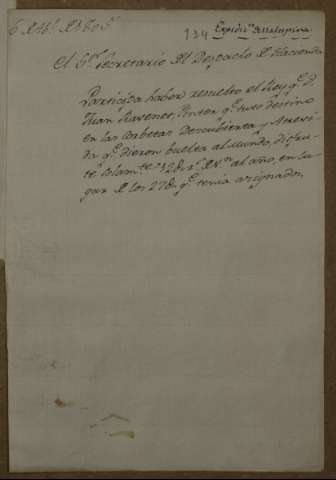 134 Expedin. Malaspina
El Sr. Secretario del Despacho de Hacienda
Participa haber resuelto el Rey qe. Dn.
Juan Ravenet, Pintor qe. tuvo destino
en las corbetas Descubierta y Atrevi-
da qe. dieron buelta al mundo, disfru-
te solamte. 12 rs. de vn. al año, en lu-
gar de los 27 qe. tenia asignados.